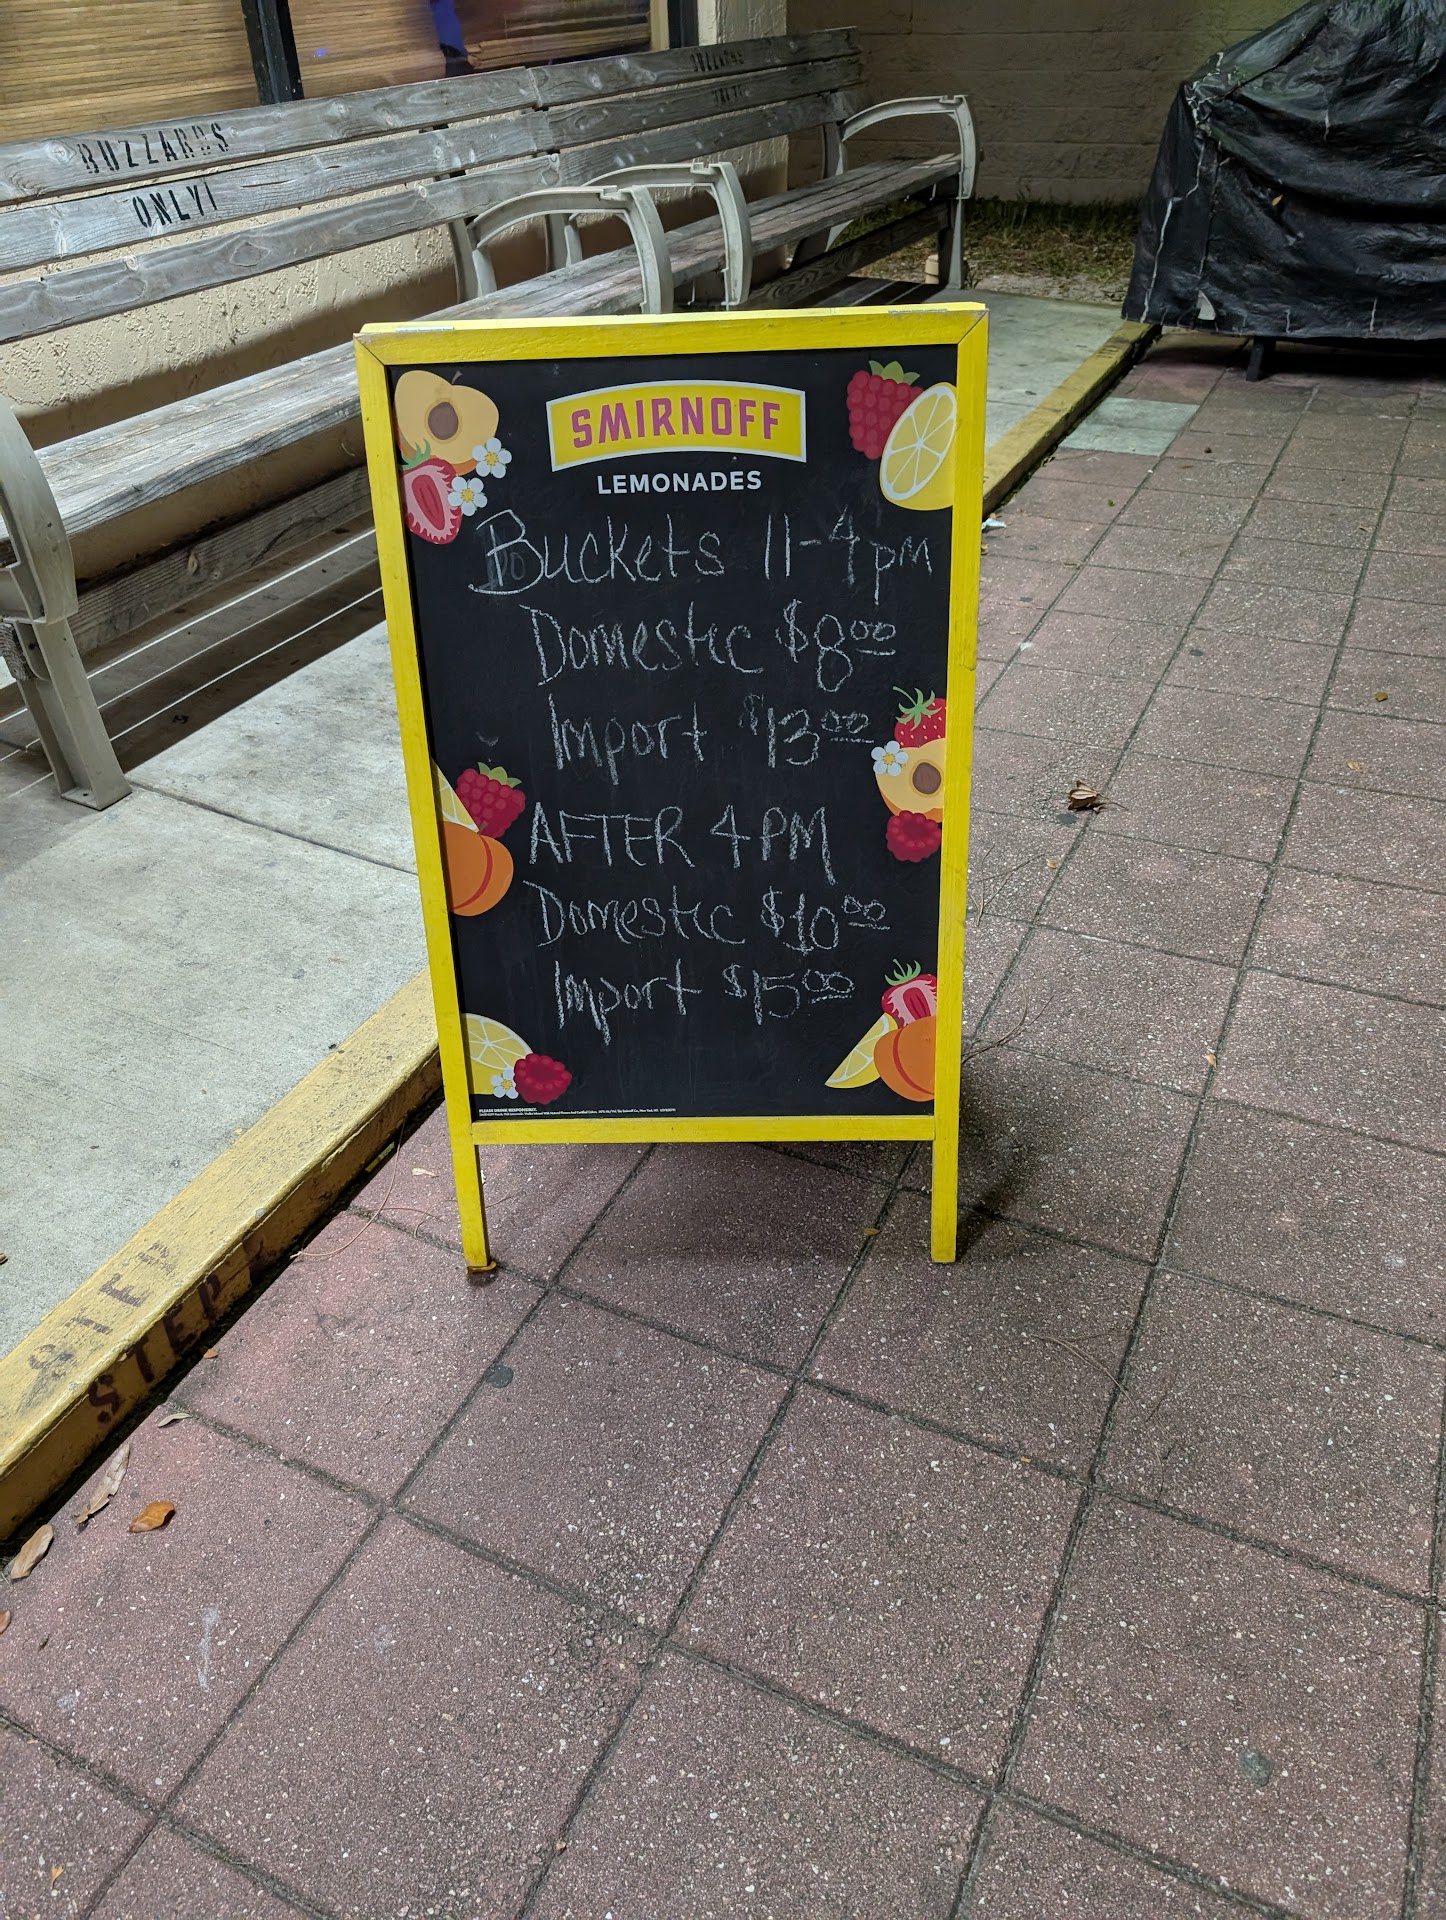 BUZZARDS
ONLY!
BUZZARDS
SMIRNOFF
LEMONADES
Buckets 11-4pm
Domestic $8.00
Import $13.00
AFTER 4PM
Domestic $10.00
Import $15.00
PLEASE DRINK RESPONSIBLY.
STEP
STEP